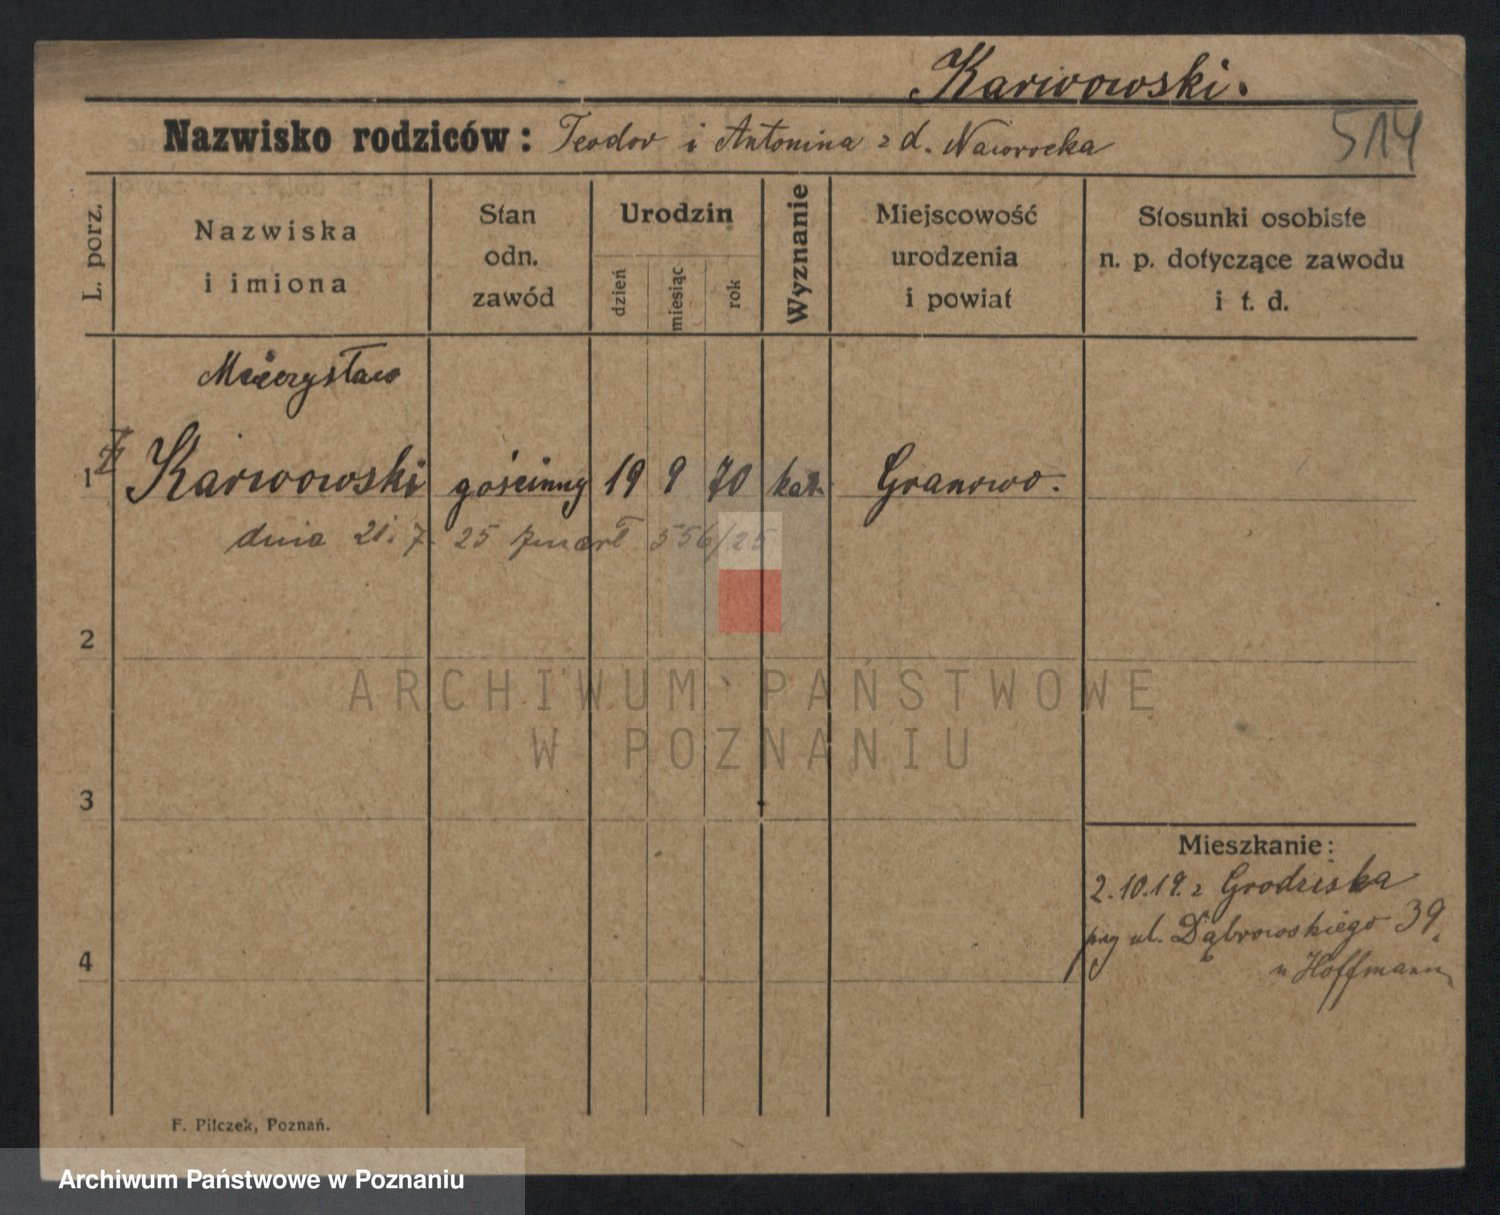 Karwowski.
514
Nazwisko rodziców: Teodor i Antonina z d. Nawrocka
L. porz.
Nazwiska
i imiona
Stan
odn.
zawód
Urodzin
dzień
miesiąc
rok
Wyznanie
Miejscowość
urodzenia
i powiat
Stosunki osobiste
n. p. dotyczące zawodu
i t. d.
Mieczysław
1 Karwowski gościnny 19 9 70 kat. Granowo.
dnia 21. 7. 25 zmarł 556/25
2
ARCHIWUM PAŃSTWOWE
W POZNANIU
3
Mieszkanie:
2.10.19. z Grodziska
przy ul. Dąbrowskiego 39.
u Hoffmann
4
F. Pilczek, Poznań.
Archiwum Państwowe w Poznaniu